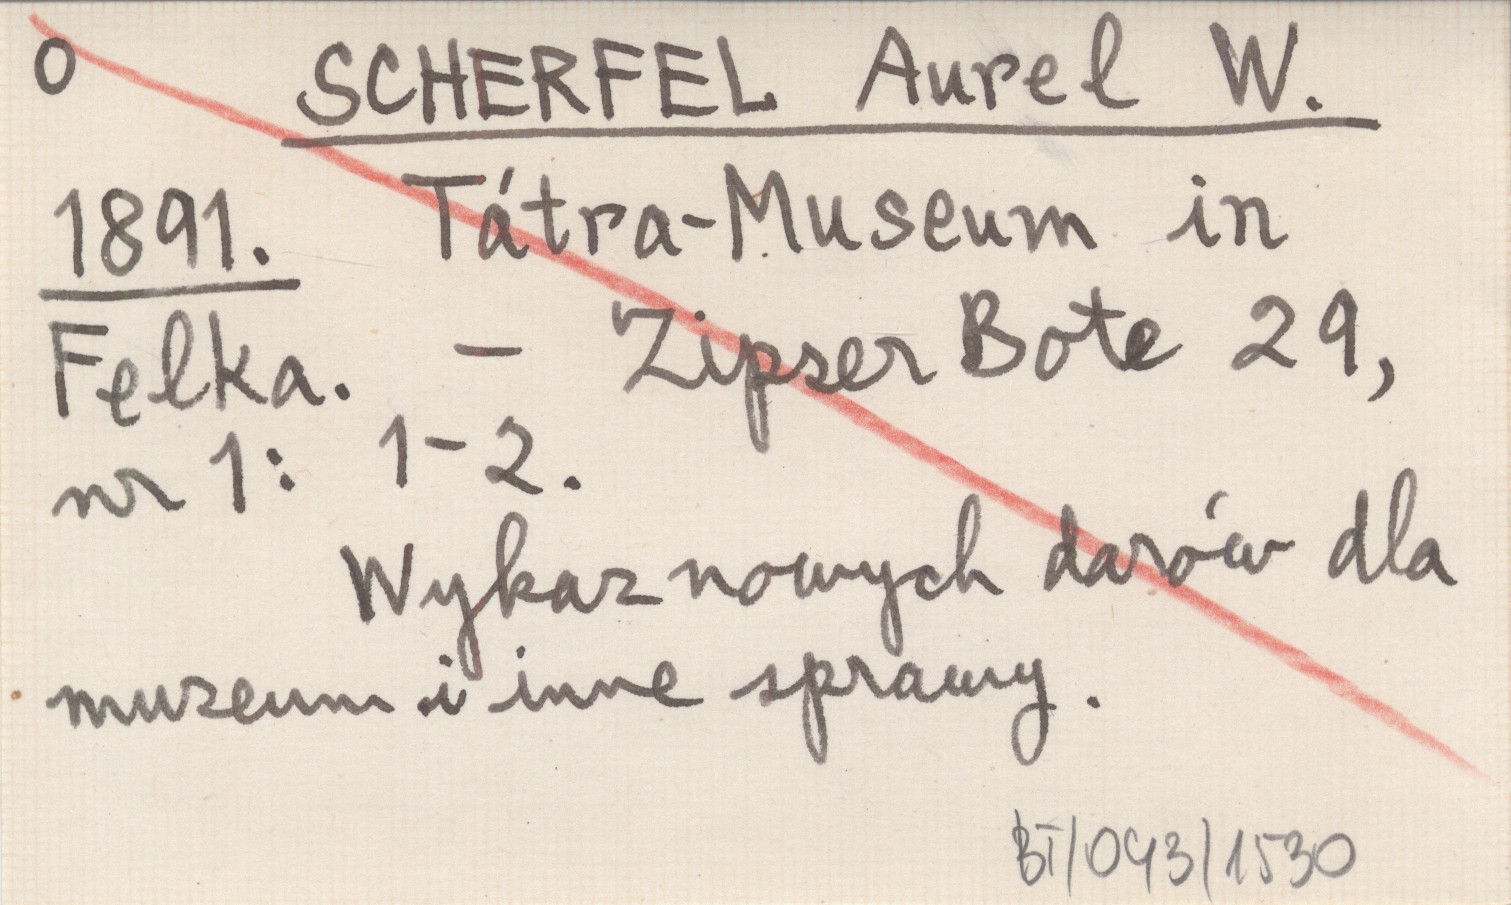 O SCHERFEL Aurel W.
1891. Tátra-Museum in
Felka. – Zipser Bote 29,
nr 1: 1-2.
Wykaz nowych darów dla
muzeum i inne sprawy.
BT/043/1530